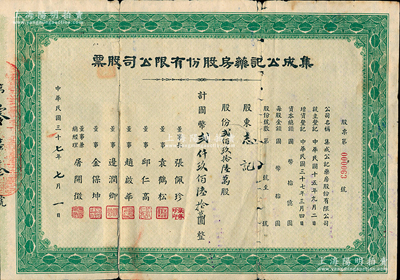 集成公記藥房股份有限公司股票
股票第 000090 號
公司名稱 集成公記藥房股份有限公司
設立登記 中華民國十五年九月二日
增資登記 中華民國三十七年三月四日
資本總額 國幣
每股金額 國幣
股份號數
股東 志記
股份貳佰玖拾陸萬股
計國幣貳仟玖佰陸拾萬圓整
董事長 張佩珍
董事 袁鶴松
董事 邱仁高
董事 趙啟華
董事 邊潤卿
董事 金保坤
董事兼總經理 屠開徵
中華民國三十七年七月一日
上海陽明拍賣